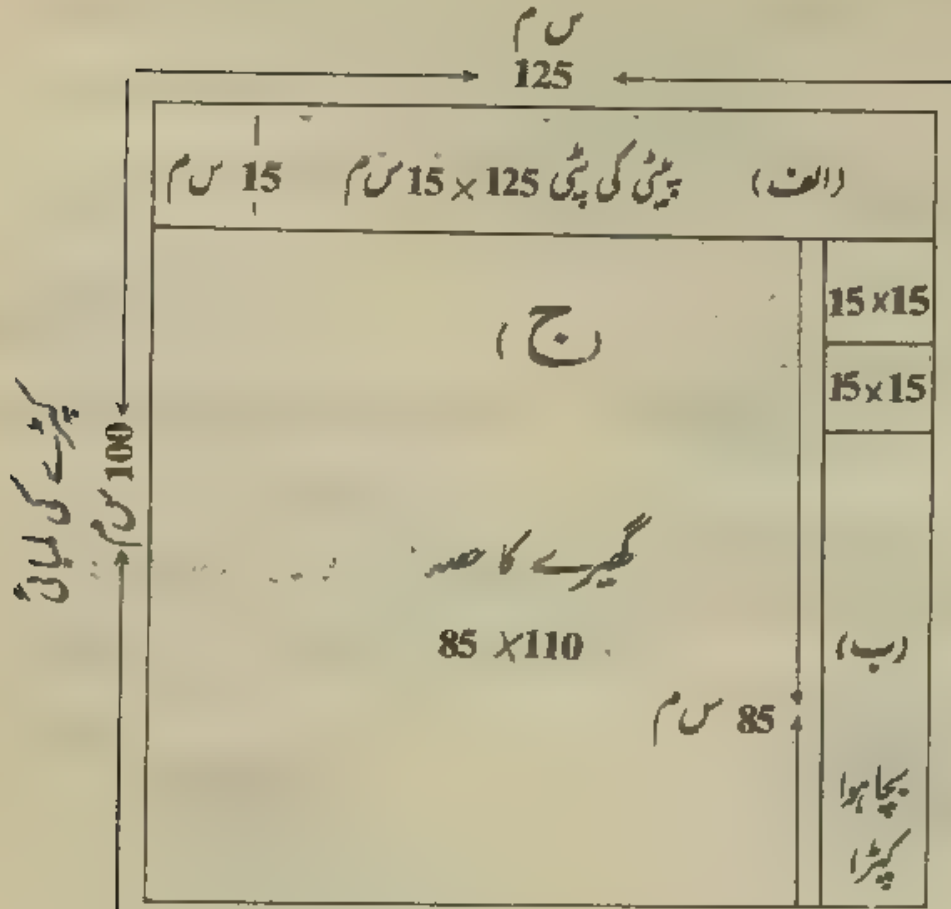 س م
125
(الف) پیٹی کی پٹی 125 × 15 س م
15 س م
15 × 15
15 × 15
(ج)
کپڑے کی لمبائی
100 س م
گھیرے کا حصہ
85 × 110
85 س م
(ب)
بچا ہوا
کپڑا